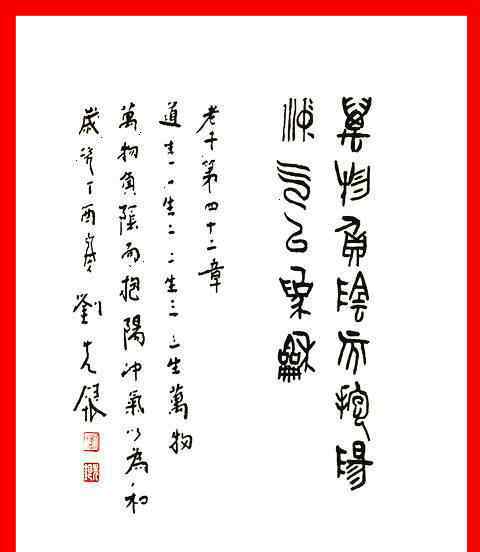 萬物負陰而抱陽
沖气以為龢
老子第四十二章
道生一一生二二生三三生萬物
萬物負陰而抱陽冲氣以為和
歲丁酉劉先銀